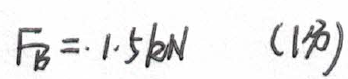 F_B = 1.5kN (1分)